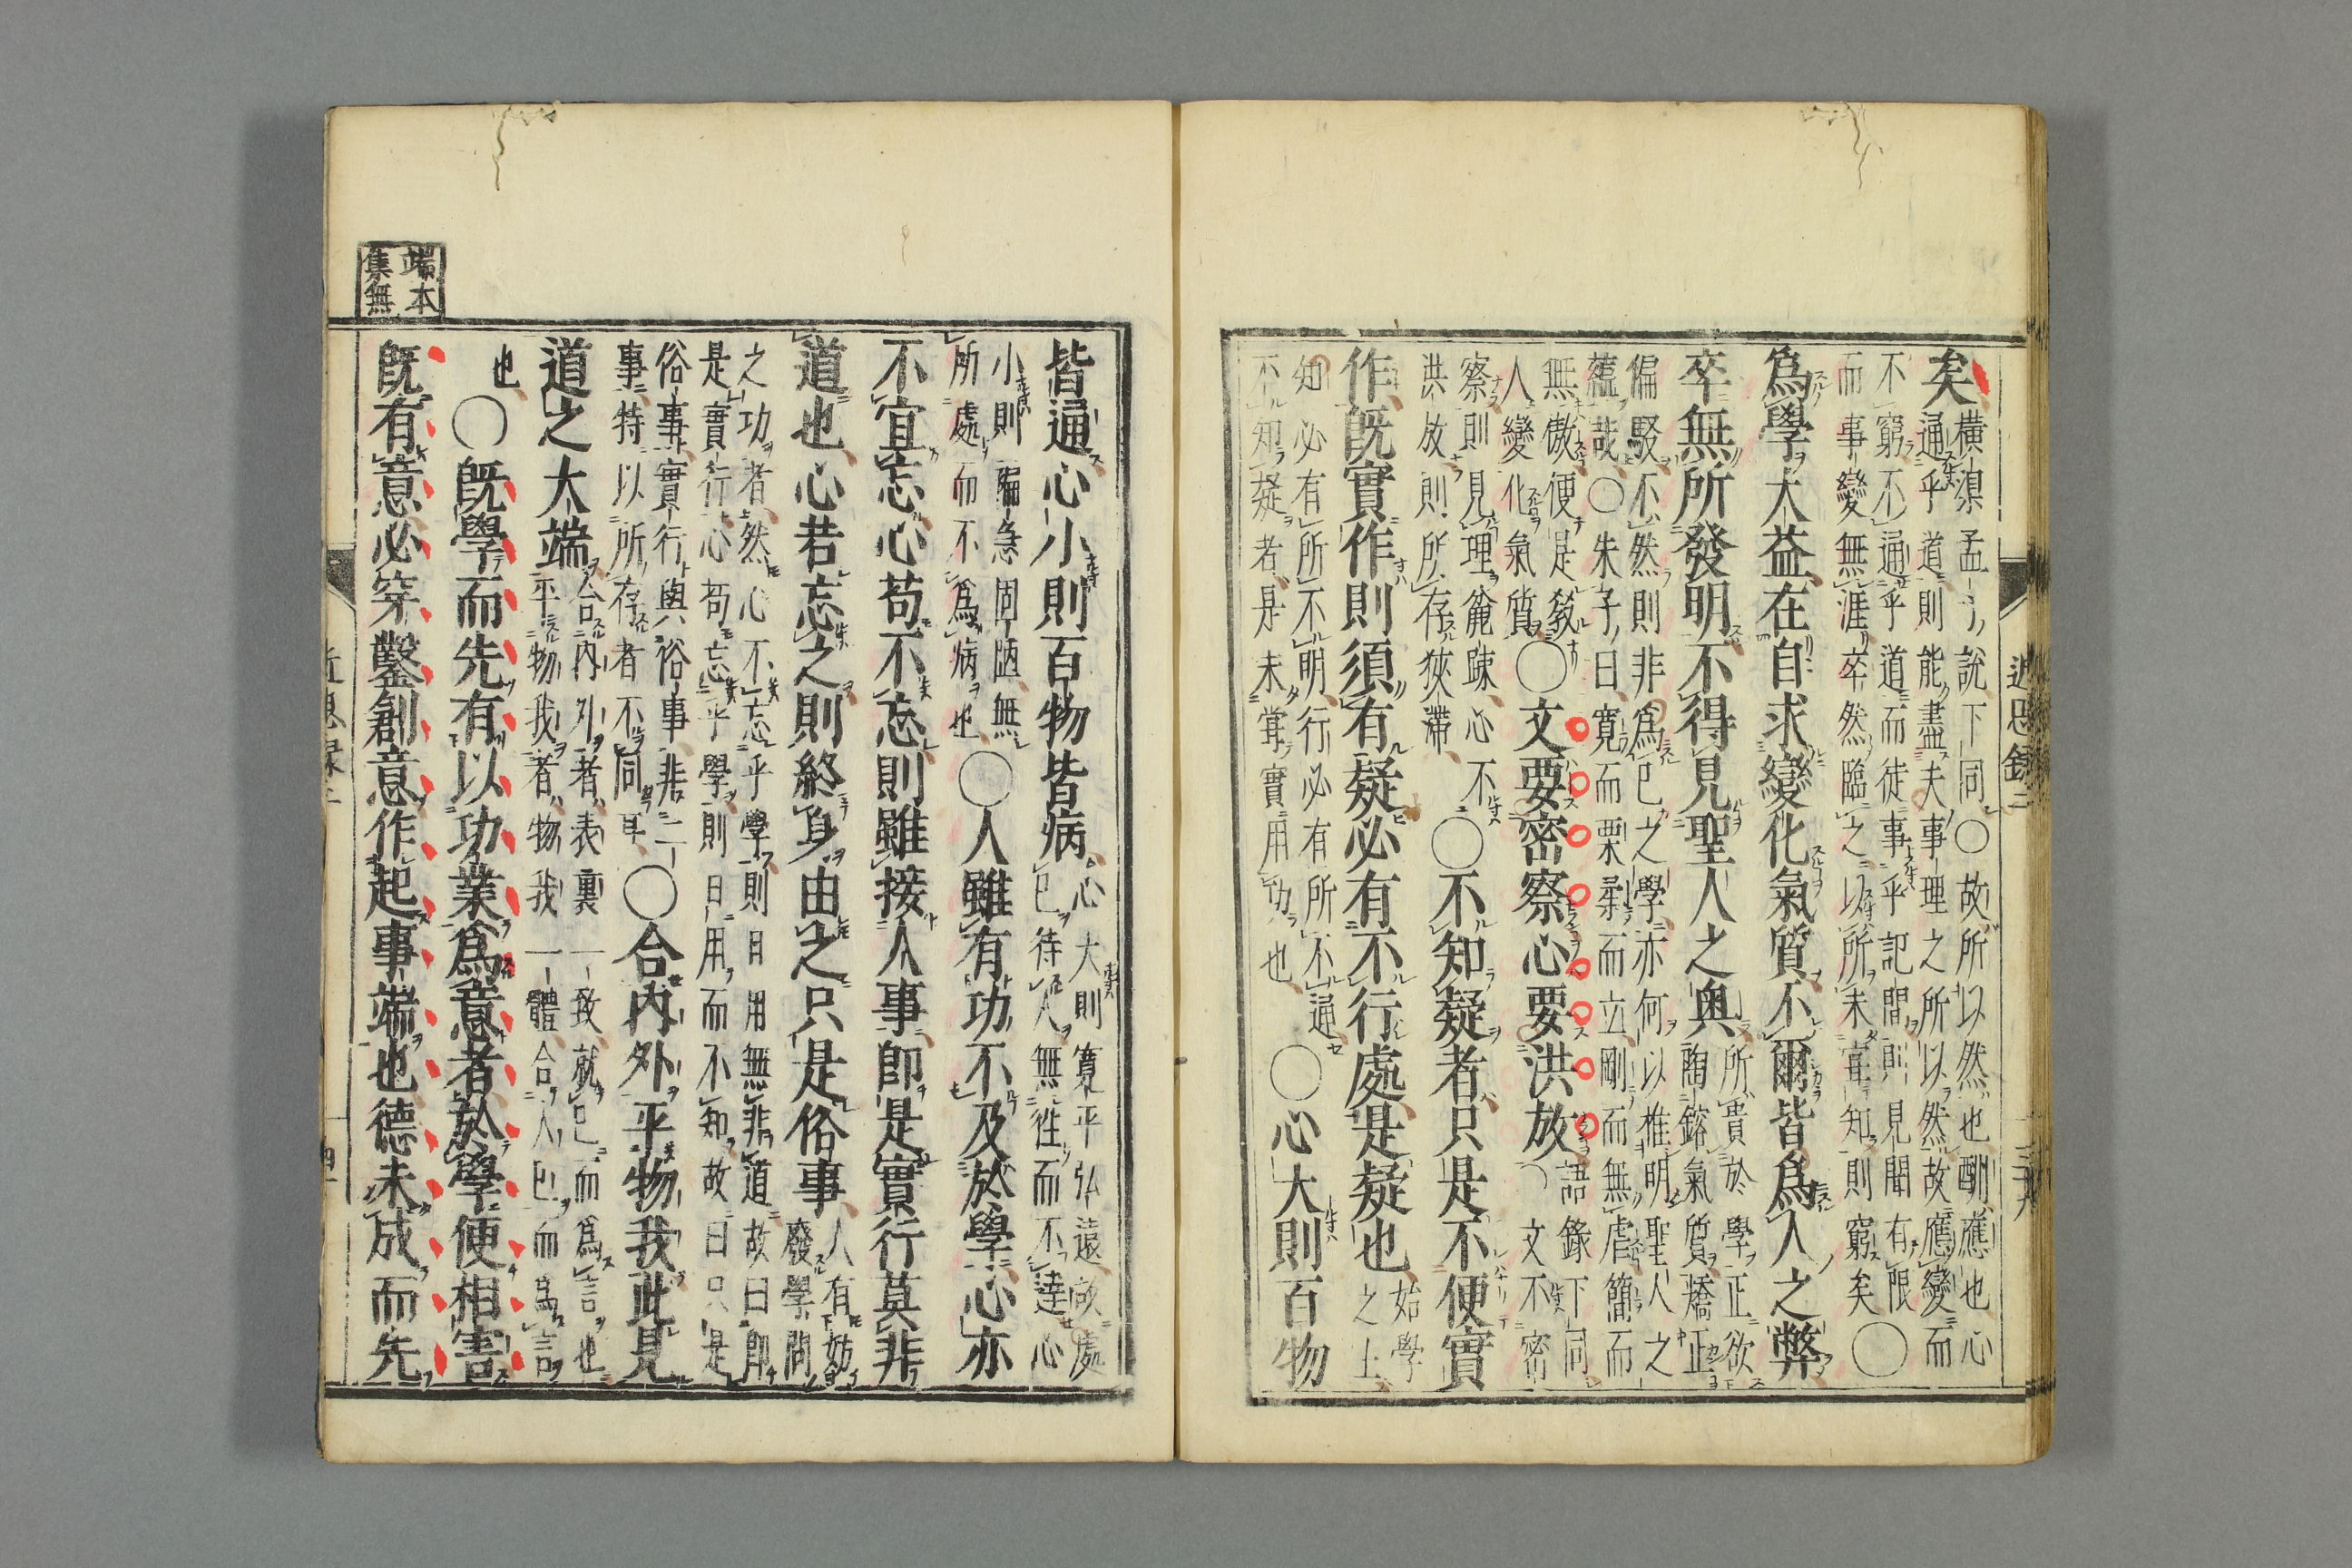 近思錄二
矣横渠孟子說下同○故所以然也酬應也心
通乎道則能盡夫事理之所以然故應變而
不窮不通乎道而徒事乎記問則見聞有限
而事變無涯卒然臨之以所未甞知則窮矣○
爲學大益在自求變化氣質不爾皆爲人之弊
卒無所發明不得見聖人之奧所貴於學正欲
陶鎔氣質矯正
偏駁不然則非爲已之學亦何以推明聖人之
蘊哉○朱子曰寛而栗柔而立剛而無虐簡而
無傲便是敎
人變化氣質○文要密察心要洪放語錄下同
文不密
察則見理麄踈心不
洪放則所存狹滯○不知疑者只是不便實
作既實作則須有疑必有不行處是疑也始學
之上
知必有所不明行必有所不通
不知疑者是未甞實用功也○心大則百物
皆通心小則百物皆病心大則寛平弘遠故處
已待人無徃而不達心
小則褊急固陋無
所處而不爲病也○人雖有功不及於學心亦
不宜忘心苟不忘則雖接人事卽是實行莫非
道也心若忘之則終身由之只是俗事人有妨
廢學問
之功者然心不忘乎學則日用無非道故曰卽
是實行心苟忘乎學則日用而不知故曰只是
俗事實行與俗事非二
事特以所存者不同耳○合內外平物我此見
道之大端合內外者表裏一致就已而爲言也
平物我者物我一體合人已而爲言
也○既學而先有以功業爲意者於學便相害
端本
集無
既有意必穿鑿創意作起事端也德未成而先